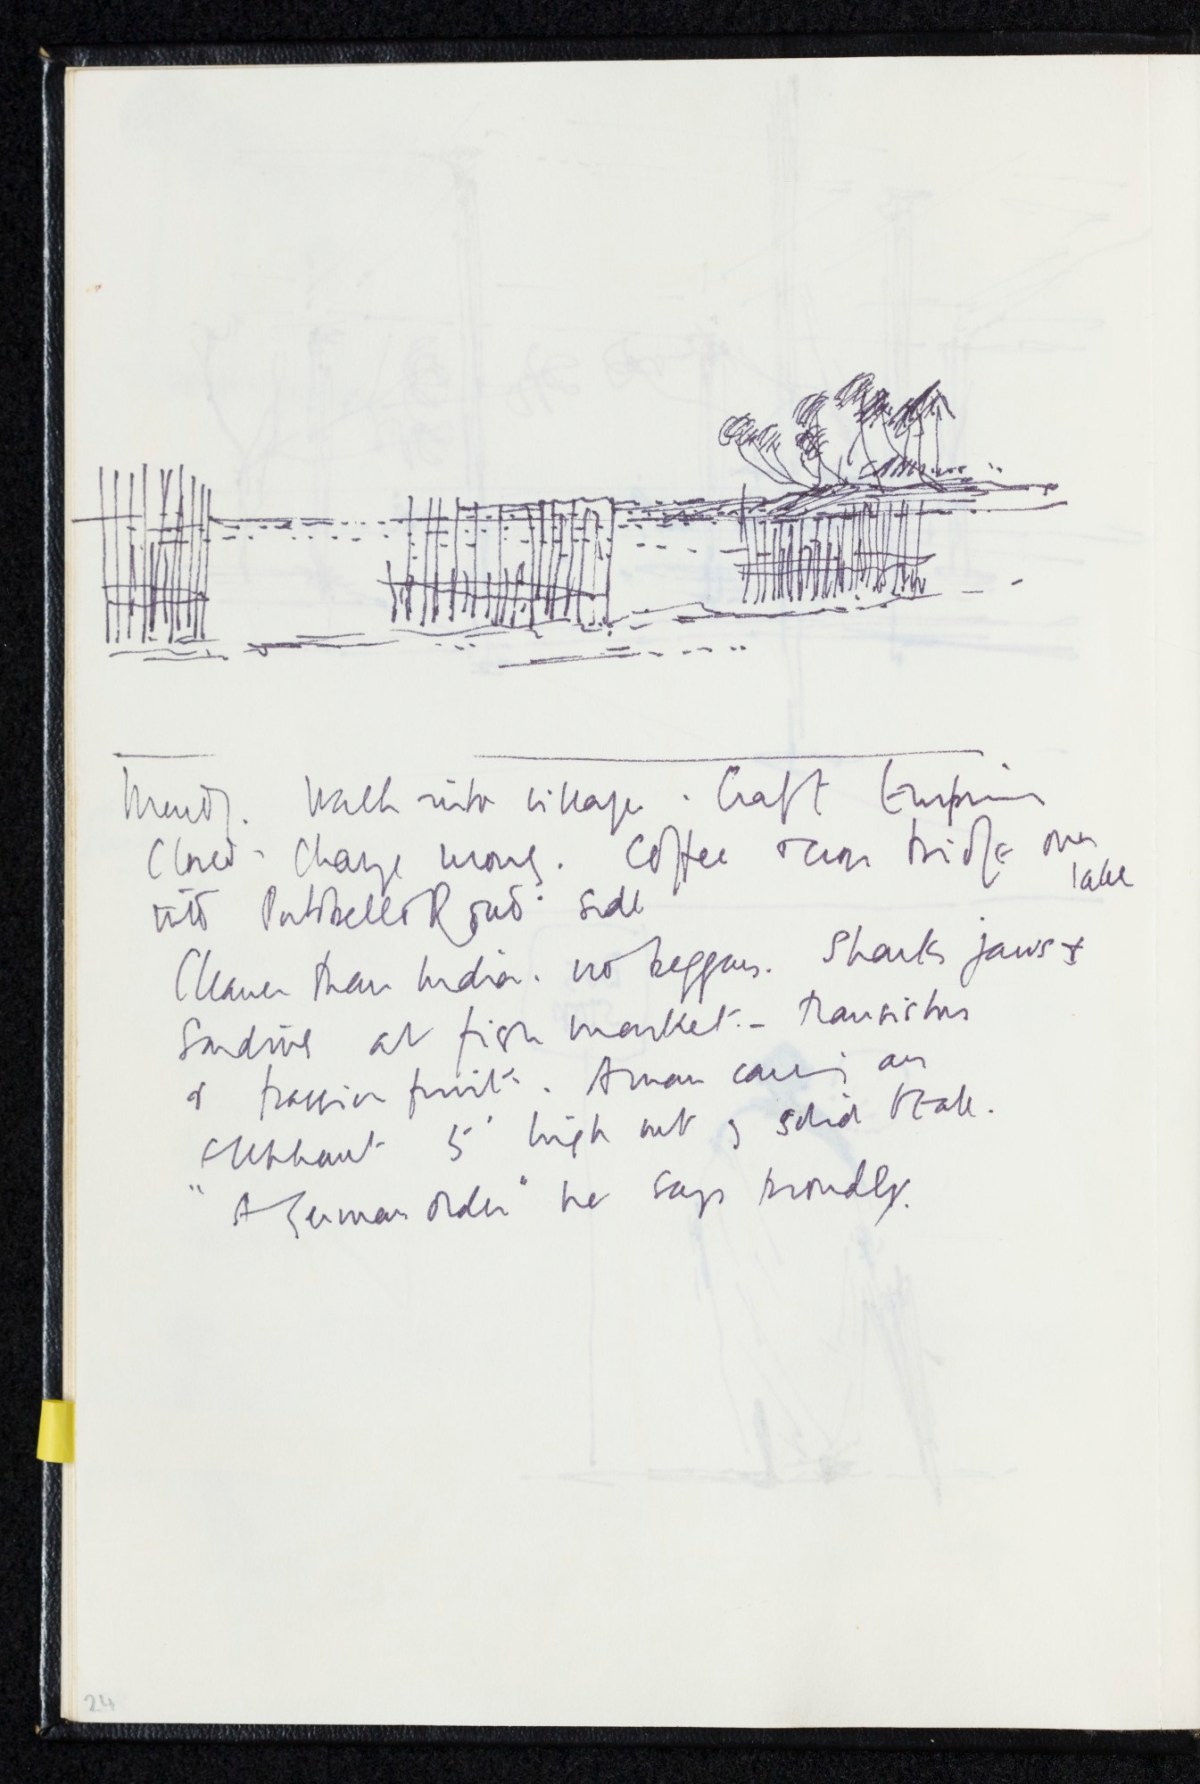 Walk into village. Craft Emporium
Closed - Change money. Coffee & cross bridge over
lake
into Portobello Road side
Cleaner than India. no beggars. Sharks jaws &
Sardines at fish market. - transistors
& passion fruit. A man carving an
elephant 5' high out of solid teak.
"A German order" he says proudly.
24